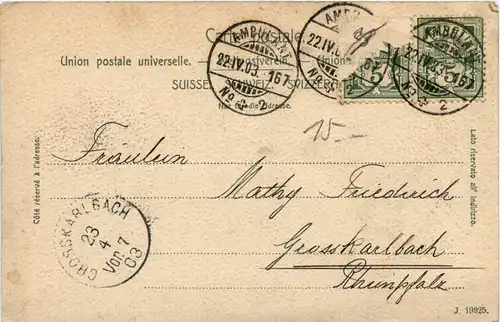 Carte postale.
Union postale universelle. Weltpostverein. Unione
SUISSE. SCHWEIZ. SVIZZERA
Nur für die Adresse.
AMBULANT
22.IV.03. 167
No 2
AMBULANT
22.IV.03. 167
No 2
AMBULANT
22.IV.03. 167
No 2
5
15-
Côté réservé à l'adresse.
Lato riservato all' indirizzo.
Fräulein
Mathy Friederich
Grosskarlbach
Rheinpfalz
GROSSKARLBACH
23
4
Vor. 7
03
J. 19925.